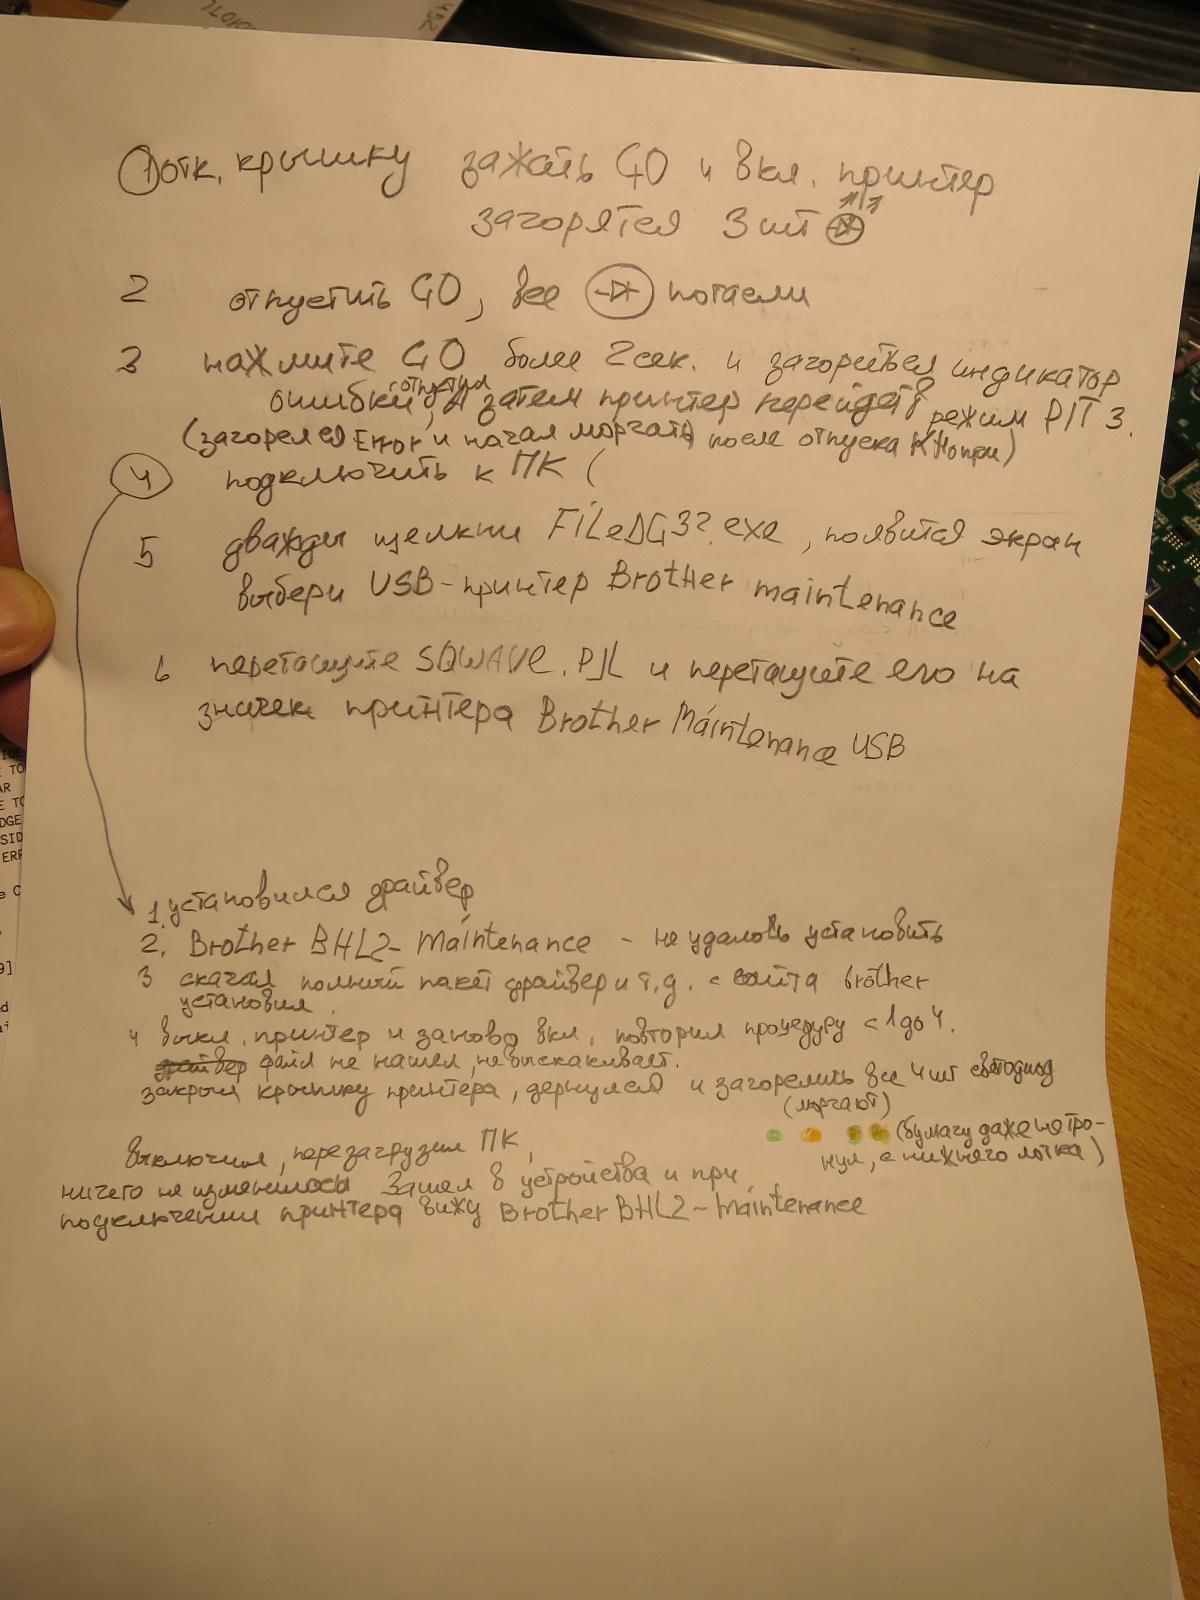 1 отк. крышку зажать GO и вкл. принтер
загорятся 3 шт
2 отпустить GO, все погасли
3 нажмите GO более 2 сек. и загориться индикатор
ошибки, отпустил, а затем принтер перейдёт в режим PIT 3.
(загорелся Error и начал моргать после отпуска кнопки)
4 подключить к ПК (
5 дважды щелкни FILeDG32.exe, появится экран
выбери USB-принтер BrotHer maintenance
6 перетащите SQWAVE.PJL и перетащите его на
значек принтера Brother Maintenance USB
1. установился драйвер
2. BrotHer BHL2-Maintenance - не удалось установить
3 скачал полный пакет драйвер и т.д. с сайта brother
установил
4 выкл. принтер и заново вкл, повторил процедуру с 1 до 4.
драйвер файл не нашел, не выскакивает.
закрыл крышку принтера, дернулся и загорелись все 4 шт светодиод
(моргают)
(бумагу даже не тро-
нул, с нижнего лотка)
Выключил, перезагрузил ПК,
ничего не изменилось Зашел в устройства и при
подключении принтера вижу BrotHer BHL2-Maintenance
452
E TO
AR
E TO
DGE
SID
ERR